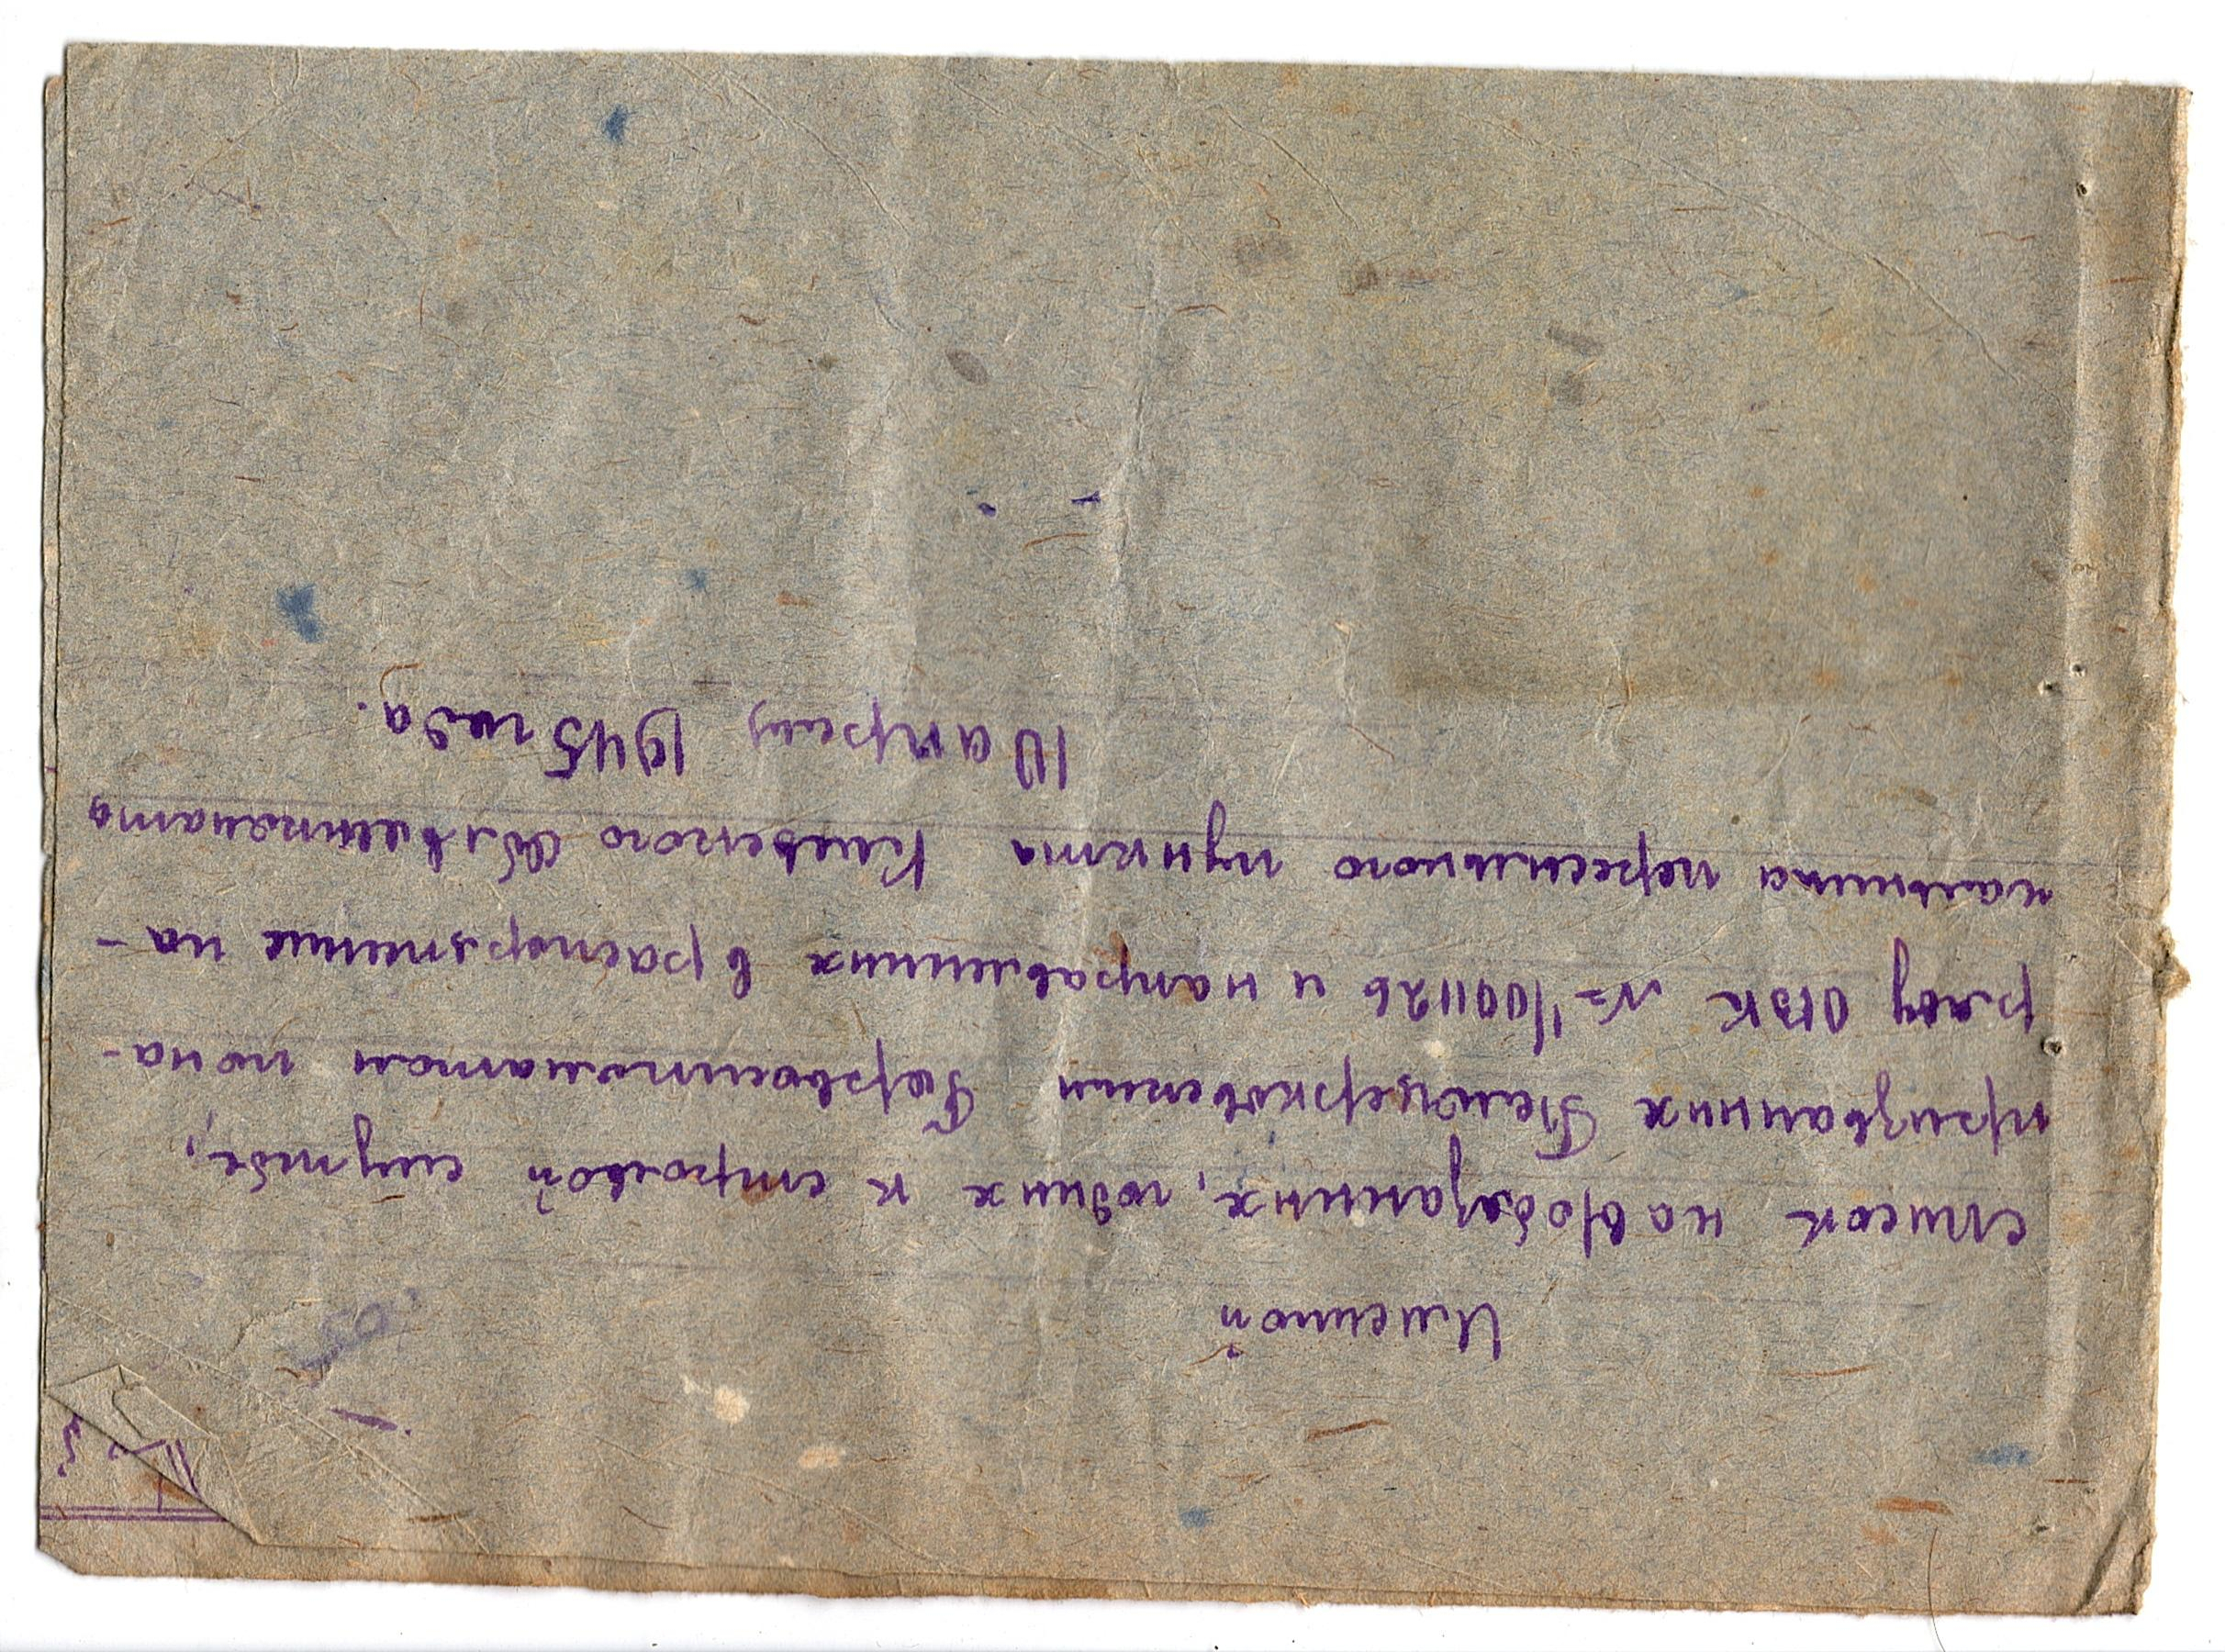 Именной
список на в/обязанных, годных к строевой службе,
призванных Белоцерковским Горвоенкоматом по на-
ряду ОВК № 1/001126 и направленных в распоряжение на-
чальника пересыльного пункта Киевского Облвоенкомата
10 апреля 1945 года.
№ 5